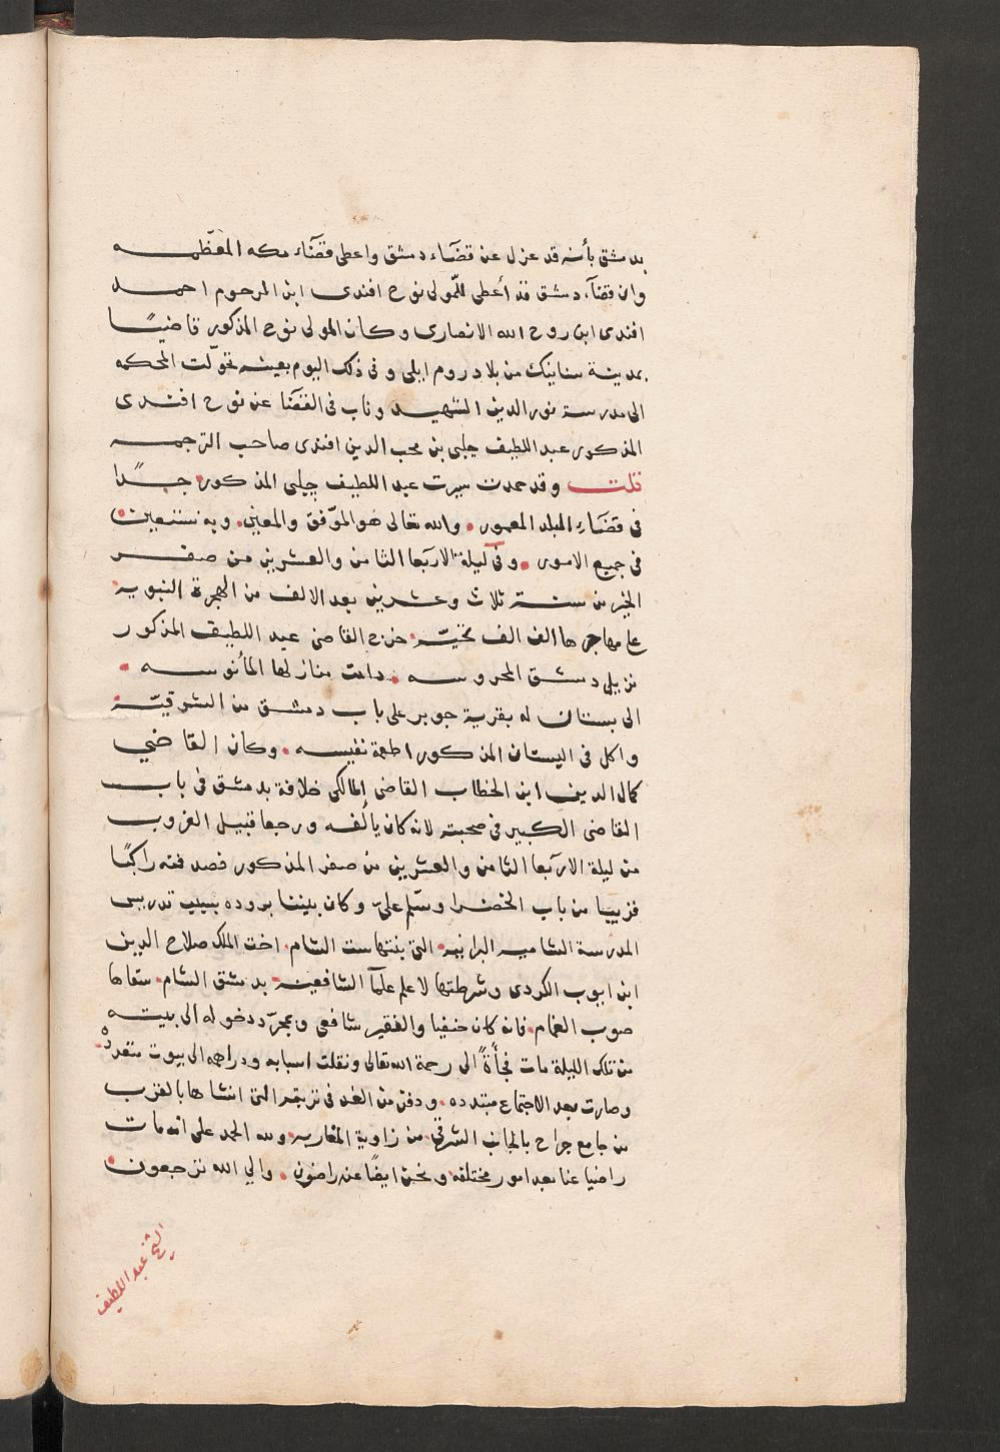 بدمشق بأنه قد عزل عن قضآء دمشق واعطى قضآء مكه المعظمه
وان قضآء دمشق قد أعطى للمولى نوح افندى ابن المرحوم احمد
افندى ابن روح الله الانصارى وكان المولى نوح المذكور قاضيًا
بمدينة سنانيك من بلاد روم ايلى وفى ذلك اليوم بعينه تحولت المحكمه
الى مدرسة نور الدين الشهيد وناب فى القضآ عن نوح افندى
المذكور عبد اللطيف چلبى بن محب الدين افندى صاحب الترجمه
قلت وقد حمدت سيرت عبد اللطيف چلبى المذكور جدًا
فى قضآء البلد المعمور • والله تعالى هو الموفق والمعين • وبه نستعين •
فى جميع الامور • وفى ليلة الاربعا الثامن والعشرين من صفر
الخير من سنة ثلاث وعشرين بعد الالف من الهجرة النبويه •
على مهاجرها الف الف تحيّة • خرج القاضى عبد اللطيف المذكور
نزيلى دمشق المحروسه • دامت منازلها المأنوسه •
الى بستان له بقرية جوبر على باب دمشق من الشرقيّة •
واكل فى البستان المذكور اطعمة نفيسه • وكان القاضي
كمال الدين ابن الخطاب القاضى المالكى خلافة بدمشق فى باب
القاضى الكبير فى صحبته لانه كان يألفه ورجعا قبيل الغروب
من ليلة الاربعا الثامن والعشرين من صفر المذكور فصدفته راكبًا
قريبا من باب الخضرا وسلم علىّ وكان بيننا بروده بسبب تدريس
المدرسة الشاميه البرانيه • التى بنتها ست الشام • اخت الملك صلاح الدين
ابن ايوب الكردى وشرطتها لاعلم علمآ الشافعيه • بدمشق الشام • سقاها
صوب الغمام • فانه كان حنفيا والفقير شافعى وبمجرّد دخوله الى بيته
من تلك الليلة مات فجأةً الى رحمة الله تعالى ونقلت اسبابه ودراهمه الى بيوت متعدده •
وصارت بعد الاجتماع متبدده • ودفن من الغد فى تربته التى انشاها بالقرب
من جامع جراح بالجانب الشرقى • من زاوية المغاربه • ولله الحمد على انه مات
راضيا عنا بعد امور مختلفه • ونحن ايضًا عنه راضون • والي الله ترجعون •
الشيخ عبد اللطيف